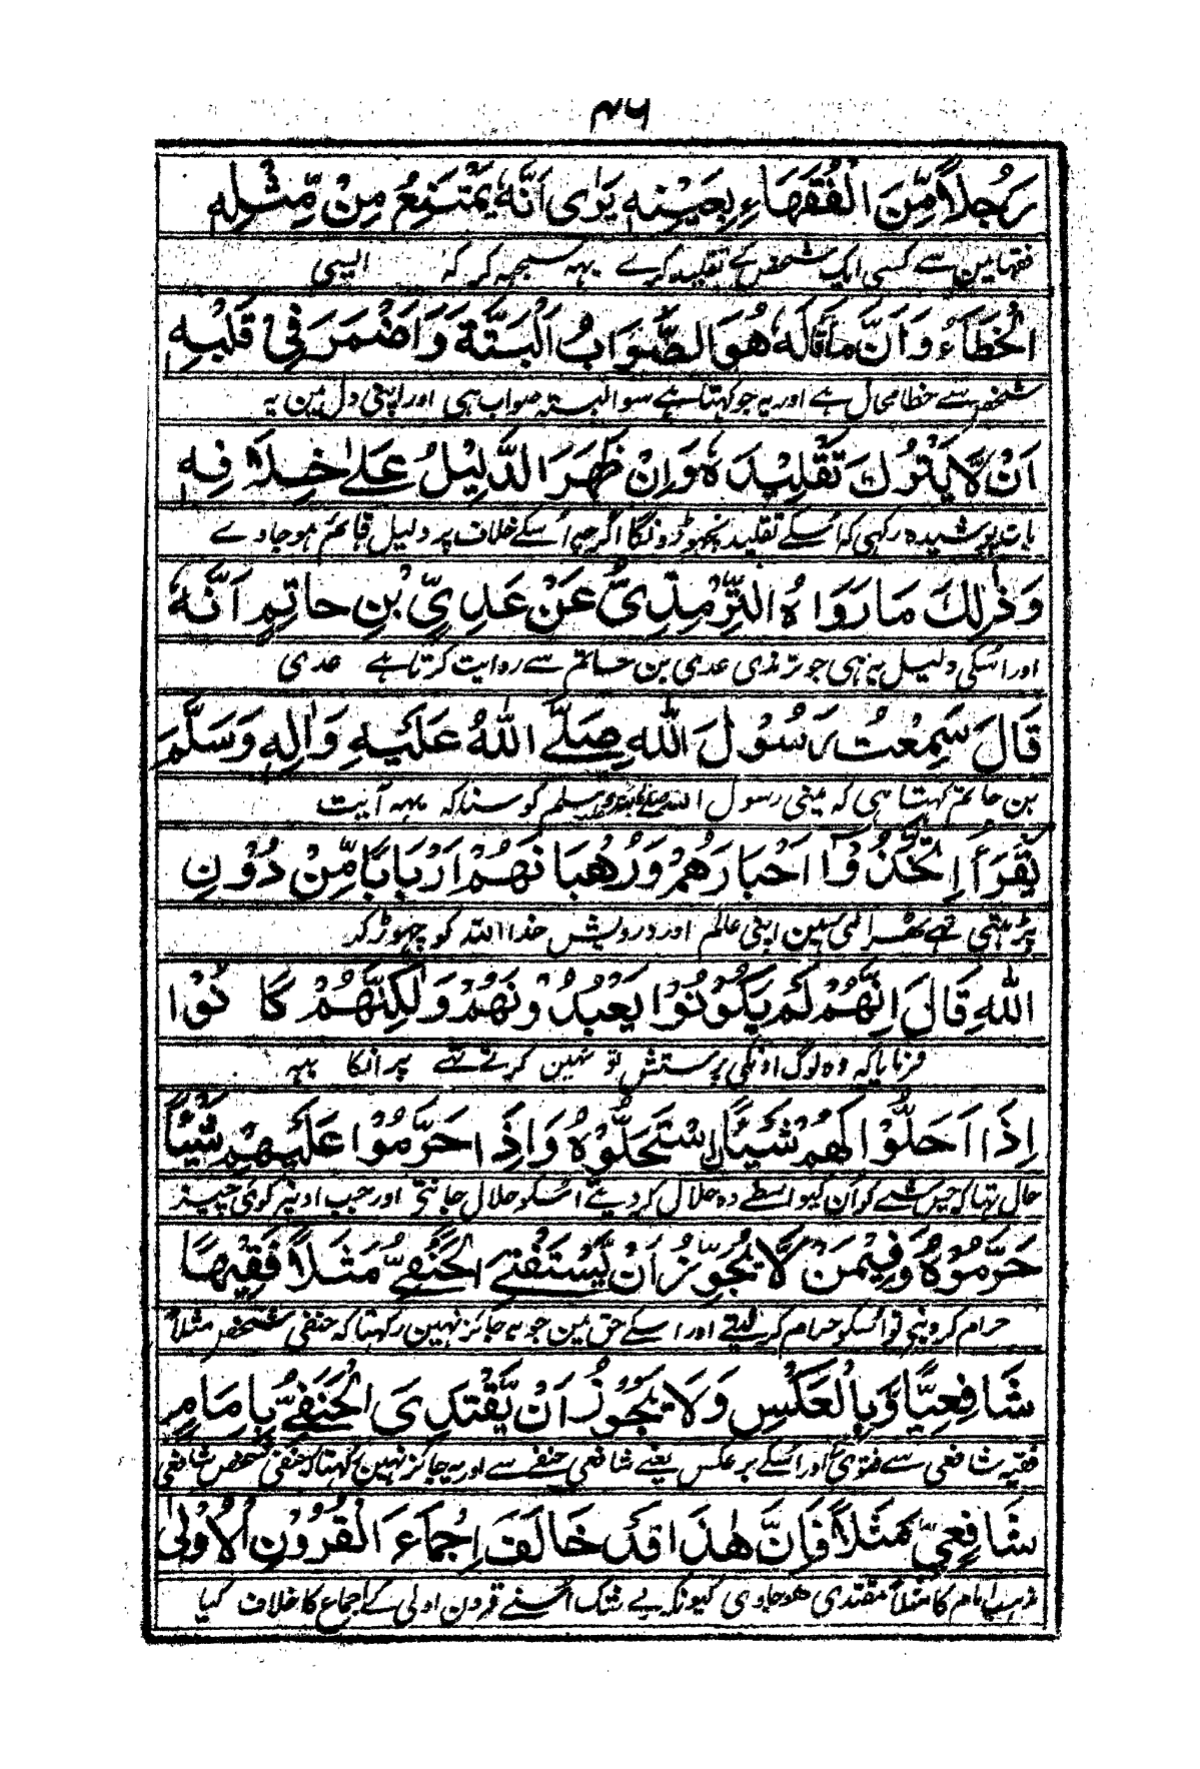 ۴۶
رَجُلًا مِّنَ الْفُقَهَاءِ بِعَيْنِهٖ يَرٰى اَنَّهٗ يَمْتَنِعُ مِنْ مِّثْلِهٖ
فقہا مین سے کسی ایک شخص کے تقلید کرے یہہ سمجہہ کر کہ ایسی
الْخَطَاءُ وَاَنَّ مَا قَالَهٗ هُوَ الصَّوَابُ اَلْبَتَّةَ وَاَضْمَرَ فِىْ قَلْبِهٖ
شخص سے خطا محال ہے اور یہ جو کہتا ہے سو البتہ صواب ہی اور اپنی دل مین یہ
اَنْ لَّا يَتْرُكَ تَقْلِيْدَهٗ وَاِنْ ظَهَرَ الدَّلِيْلُ عَلٰى خِلَافِهٖ
بات پوشیدہ رکہی کہ اُسکے تقلید نچھوڑونگا اگرچہ اُسکے خلاف پر دلیل قائم ہو جاوے
وَذٰلِكَ مَا رَوَاهُ التِّرْمِذِىُّ عَنْ عَدِىِّ بْنِ حَاتِمٍ اَنَّهٗ
اور اُسکی دلیل یہ ہی جو ترمذی عدی بن حاتم سے روایت کرتا ہے عدی
قَالَ سَمِعْتُ رَسُوْلَ اللّٰهِ صَلَّى اللّٰهُ عَلَيْهِ وَاٰلِهٖ وَسَلَّمَ
بن حاتم کہتا ہی کہ مینی رسول اللہ صلی اللہ علیہ وسلم کو سنا کہ یہہ آیت
يَقْرَأُ اِتَّخَذُوْٓا اَحْبَارَهُمْ وَرُهْبَانَهُمْ اَرْبَابًا مِّنْ دُوْنِ
پڑہتی تہے ٹھرالئی ہین اپنی عالم اور درویش خدا اللہ کو چہوڑ کر
اللّٰهِ قَالَ اِنَّهُمْ لَمْ يَكُوْنُوْا يَعْبُدُوْنَهُمْ وَلٰكِنَّهُمْ كَانُوْا
فرمایا کہ وہ لوگ اونکی پرستش تو نہین کرتے تہے پر انکا یہہ
اِذَا اَحَلُّوْا لَهُمْ شَيْئًا اِسْتَحَلُّوْهُ وَاِذَا حَرَّمُوْا عَلَيْهِمْ شَيْئًا
حال تہا کہ جس شے کو اُن کیواسطے وہ حلال کر دیتے اُسکو حلال جانتی اور جب اونپر کوی چیز
حَرَّمُوْهُ وَفِيْمَنْ لَّا يُجَوِّزُ اَنْ يَّسْتَفْتِىَ الْحَنَفِىُّ مَثَلًا فَقِيْهًا
حرام کردیتے تو اُسکو حرام کر لیتے اور اسکے حق مین جو یہ جائز نہین رکہتا کہ حنفی شخص مثلاً
شَافِعِيًّا وَّبِالْعَكْسِ وَلَا يُجَوِّزُ اَنْ يَّقْتَدِىَ الْحَنَفِىُّ بِاِمَامٍ
فقیہ شافعی سے فتوی اور اُسکے برعکس یعنے شافعی حنفے سے اور یہ جائز نہین رکہتا کہ حنفی شخص شافعی
شَافِعِىٍّ مَثَلًا فَاِنَّ هٰذَا قَدْ خَالَفَ اِجْمَاعَ الْقُرُوْنِ الْاُوْلٰى
مذہب امام کا مثلاً مقتدی ھو جاوی کیونکہ بے شک اُسنے قرون اولی کے اجماع کا خلاف کیا